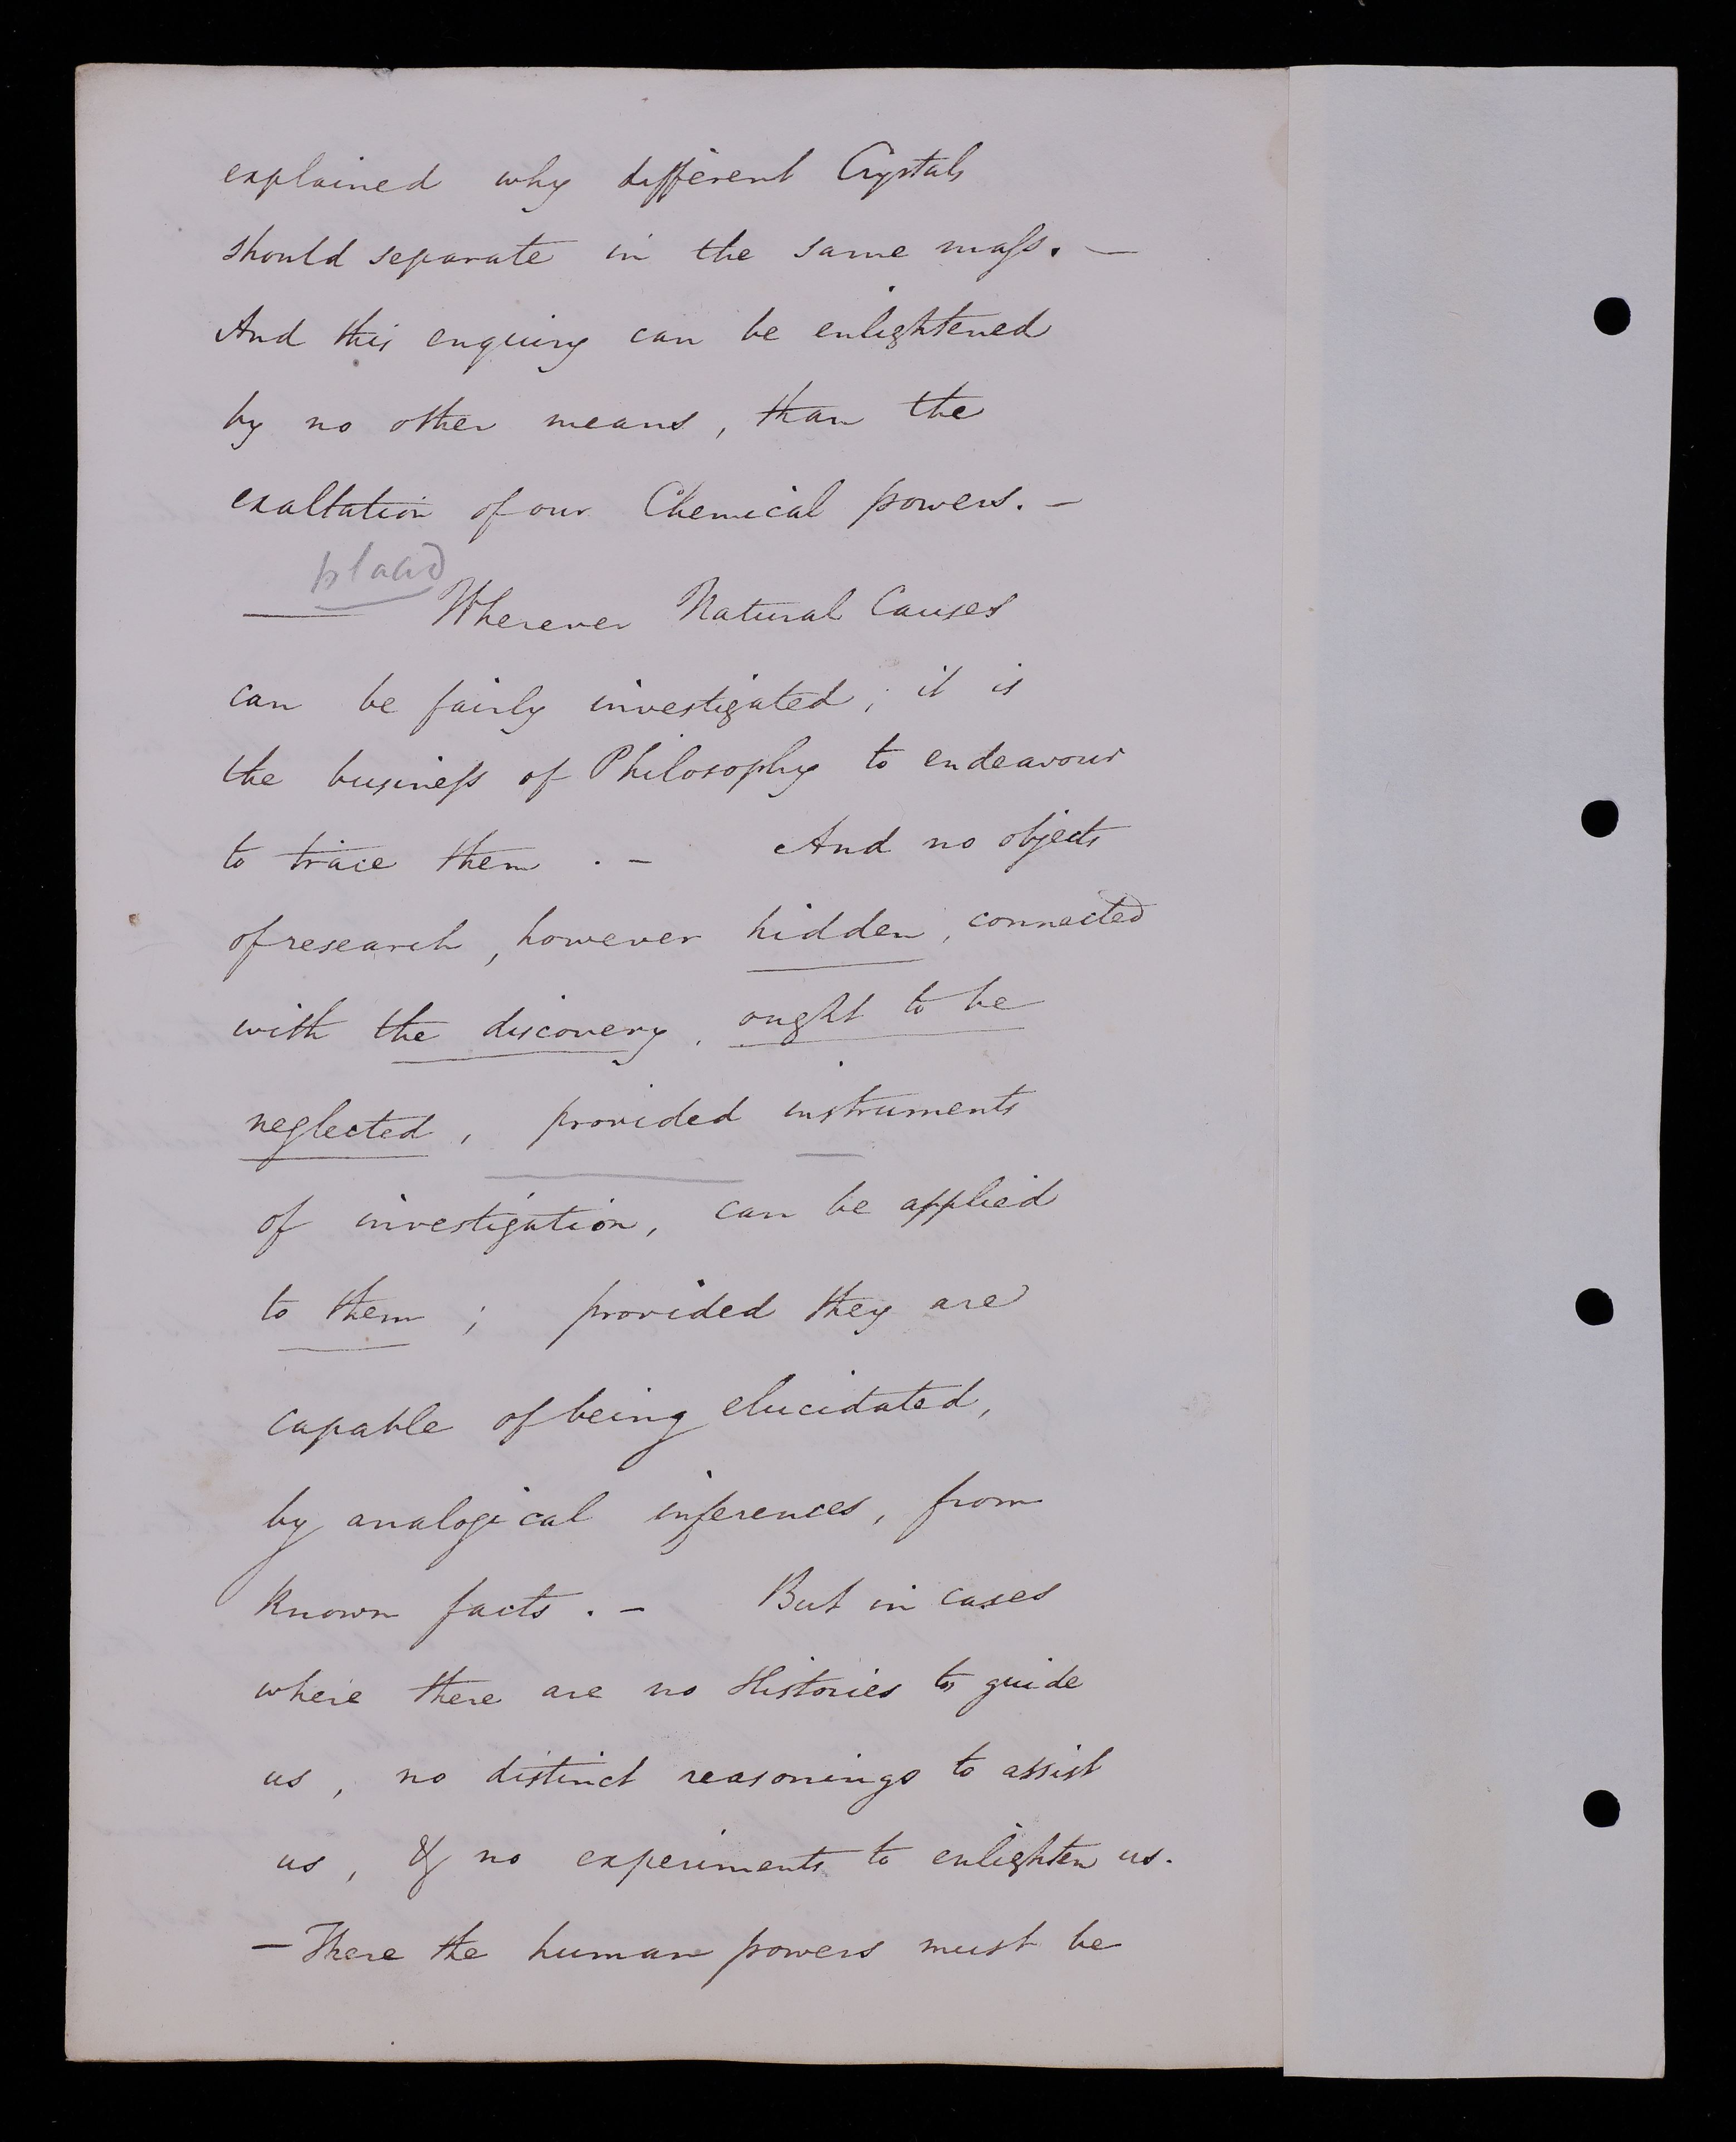 explained why different Crystals
should separate in the same maſs. —
And this enquiry can be enlightened
by no other means, than the
exaltation of our Chemical powers. —
— Wherever Natural Causes
can be fairly investigated, it is
the busineſs of Philosophy to endeavour
to trace them . — And no objects
of research, however hidden, connected
with the discovery, ought to be
neglected, provided instruments
of investigation, can be applied
to them ; provided they are
capable of being elucidated,
by analogical inferences, from
known facts . — But in cases
where there are no Histories to guide
us, no distinct reasonings to assist
us, & no experiments to enlighten us.
— There the human powers must be